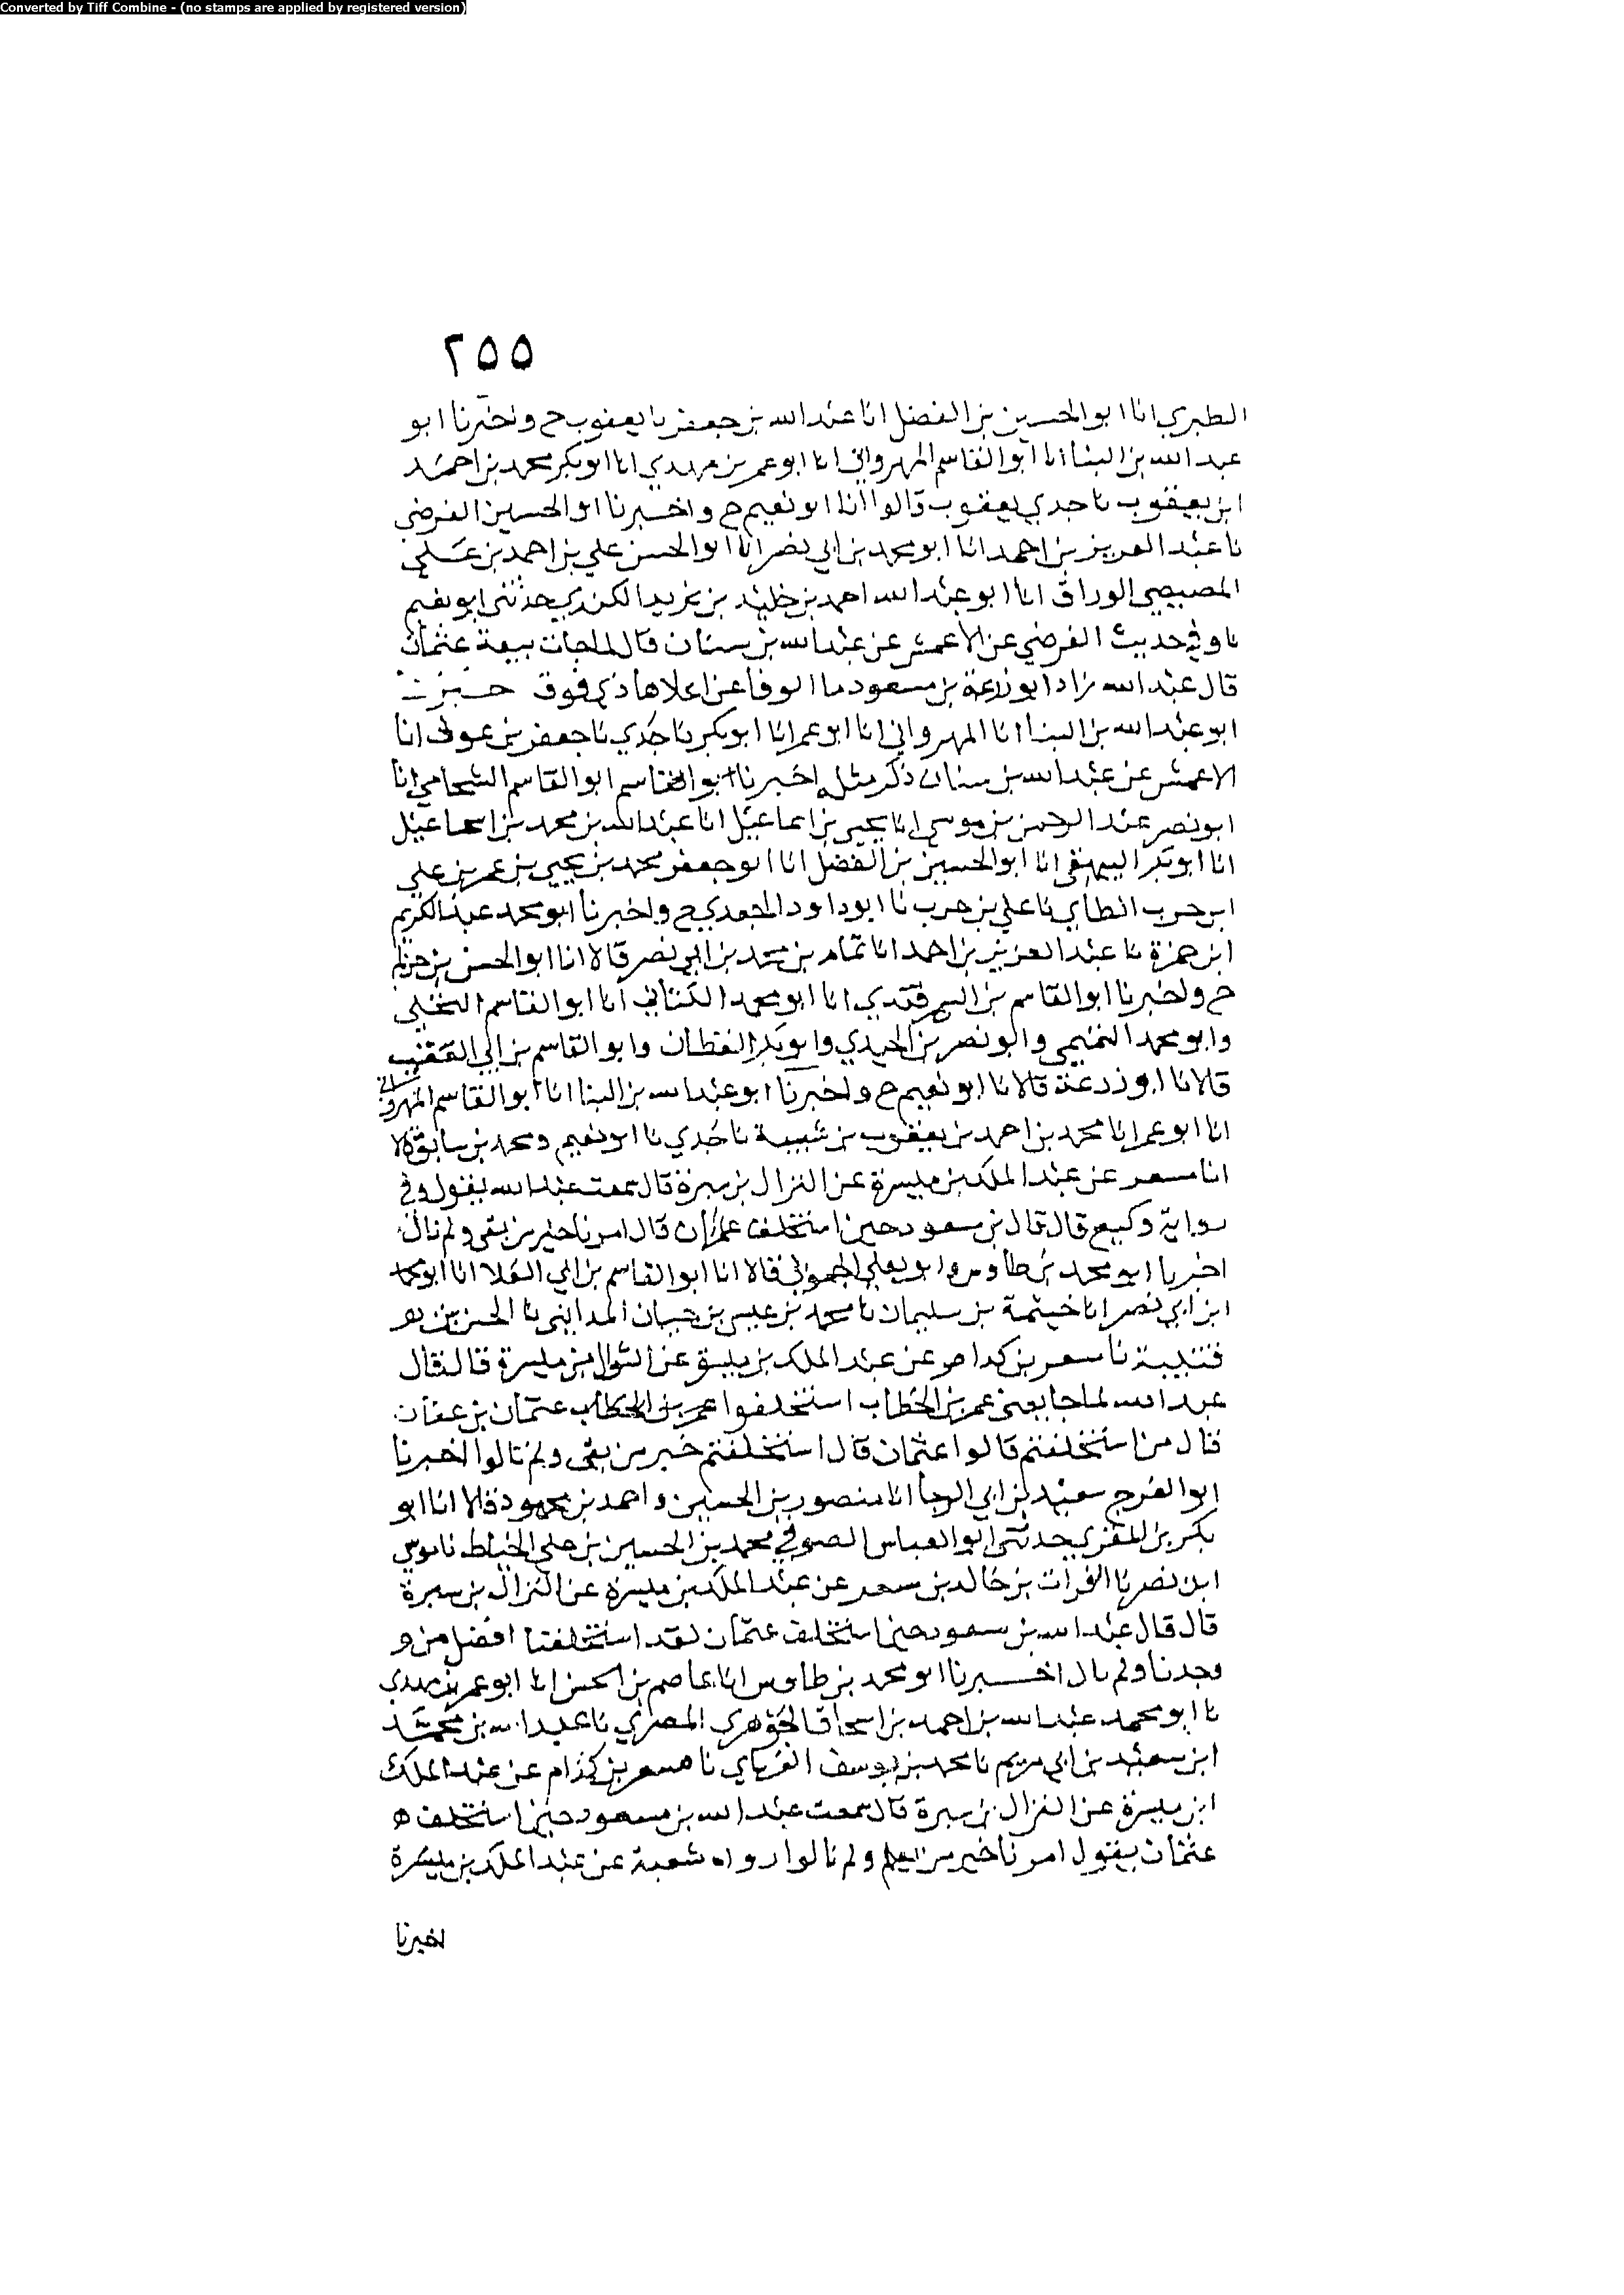 Converted by Tiff Combine - (no stamps are applied by registered version)
٢٥٥
الطبري انا ابو الحسين بن الفضل انا عبد الله بن جعفر نا يعقوب ح واخبرنا ابو
عبد الله بن البنا انا ابو القاسم المهرواني انا ابو عمر بن مهدي انا ابو بكر محمد بن احمد
ابن يعقوب نا جدي يعقوب قالوا انا ابو نعيم ح واخبرنا ابو الحسين الفرضي
نا عبد العزيز بن احمد انا ابو محمد بن ابي نصر انا ابو الحسن علي بن احمد بن علي
المصيصي الوراق انا ابو عبد الله احمد بن خليد بن يزيد الكندي حدثني ابو نعيم
نا وفي حديث الفرضي عن الاعمش عن عبد الله بن سنان قال لما جات بيعة عثمان
قال عبد الله زاد ابو زرعة بن مسعود ما الوفا عن اعلاها ذي فوق
ابو عبد الله بن البنا انا المهرواني انا ابو عمر انا ابو بكر نا جدي نا جعفر بن عون انا
الاعمش عن عبد الله بن سنان ذكر مثله اخبرنا ابو القاسم ابو القاسم الشحامي انا
ابو نصر عبد الرحمن بن موسى انا يحيى بن اسماعيل انا عبد الله بن محمد بن اسماعيل
انا ابو بكر البيهقي انا ابو الحسين بن الفضل انا ابو جعفر محمد بن يحيى بن عمر بن علي
ابن حرب الطاي نا علي بن حرب نا ابو داود الجعدي ح واخبرنا ابو محمد عبد الكريم
ابن حمزة نا عبد العزيز بن احمد انا تمام بن محمد بن ابي نصر قالا انا ابو الحسن بن حذلم
ح واخبرنا ابو القاسم بن السمرقندي انا ابو محمد الكتاني انا ابو القاسم البجلي
وابو محمد التميمي وابو نصر بن الجندي وابو بكر القطان وابو القاسم بن ابي العقب
قالانا ابو زرعة قالانا ابو نعيم ح واخبرنا ابو عبد الله بن البنا انا ابو القاسم المهرواني
انا ابو عمر انا محمد بن احمد بن يعقوب بن شيبة نا جدي نا ابو نعيم ومحمد بن سابق قالا
انا مسعر عن عبد الملك بن ميسرة عن النزال بن سبرة قال سمعت عبد الله يقول وفي
رواية وكيع قال قال بن مسعود حين استخلف عثمان قال امرنا خير من بقي ولم نال
اخبرنا ابو محمد بن طاوس وابو يعلى قالا انا ابو القاسم بن ابي العلا انا ابو محمد
ابن ابي نصر انا خيثمة بن سليمان نا محمد بن عيسى بن حيان المدايني نا الحسن بن
قتيبة نا مسعر بن كدام عن عبد الملك بن ميسرة عن النزال بن ميسرة قال لقال
عبد الله لما جا يعني عمر بن الخطاب استخلفوا عمر بن الخطاب عثمان بن عفان
قال من استخلفتم قالوا عثمان قال استخلفتم خير من بقي ولم تالوا اخبرنا
ابو الفرج سعيد بن ابي الرجا انا منصور بن الحسين واحمد بن محمود قالا انا ابو
بكر بن المقري حدثني ابو العباس الصوفي محمد بن الحسين بن علي الخياط نا موسى
ابن نصر نا الفرات بن خالد بن سعر عن عبد الملك بن ميسرة عن النزال بن سبرة
قال قال عبد الله بن مسعود حين استخلف عثمان لقد استخلفنا افضل من و
وجدنا ولم نال اخبرنا ابو محمد بن طاوس انا عاصم بن الحسن انا ابو عمر بن مهدي
نا ابو محمد عبد الله بن احمد بن اسحاق الجوهري المصري نا عبد الله بن محمد
ابن سعيد بن ابي مريم نا محمد بن يوسف الفريابي نا مسعر بن كدام عن عبد الملك
ابن ميسرة عن النزال بن سبرة قال سمعت عبد الله بن مسعود حين استخلف ه
عثمان يقول امرنا خير من ولم نالوا رواه شعبة عن عبد الملك بن ميسرة
اخبرنا